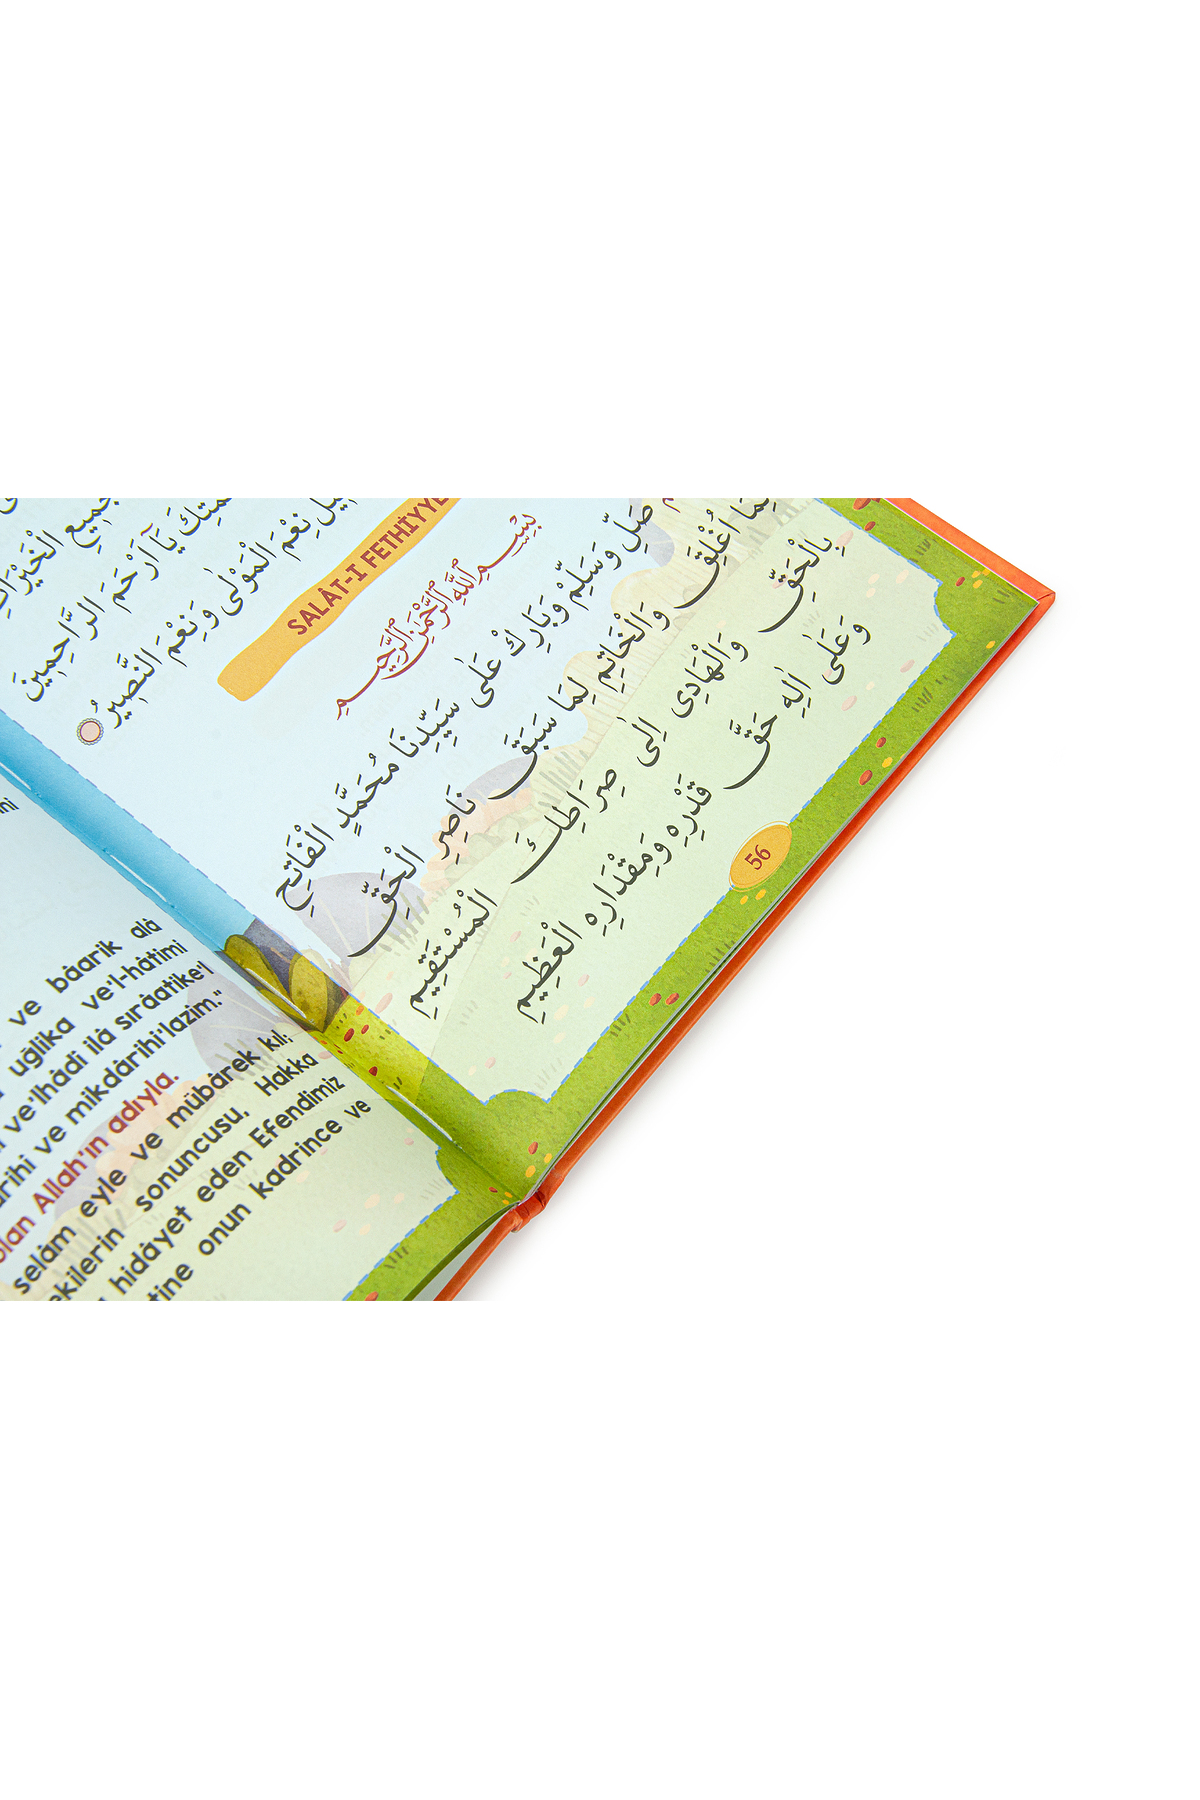 جَمِيعِ الْخَيْرَاتِ
يَٓا اَرْحَمَ الرَّاحِمِينَ
نِعْمَ الْمَوْلٰى وَنِعْمَ النَّصِيرُ
SALAT-I FETHİYYE
بِسْمِ اللّٰهِ الرَّحْمٰنِ الرَّحِيمِ
صَلِّ وَسَلِّمْ وَبَارِكْ عَلٰى سَيِّدِنَا مُحَمَّدٍ الْفَاتِحِ
لِمَا اُغْلِقَ وَالْخَاتِمِ لِمَا سَبَقَ نَاصِرِ الْحَقِّ
بِالْحَقِّ وَالْهَادِى اِلٰى صِرَاطِكَ الْمُسْتَقِيمِ
وَعَلٰى اٰلِهِ حَقَّ قَدْرِهِ وَمِقْدَارِهِ الْعَظِيمِ
56
ve bâarik alâ
uğlika ve'l-hâtimi
ve'lhâdi ilâ sırâatike'l
ve mikdârihi'lazim."
Allah'ın adıyla.
selâm eyle ve mübârek kıl;
sonuncusu, Hakka
hidâyet eden Efendimiz
onun kadrince ve